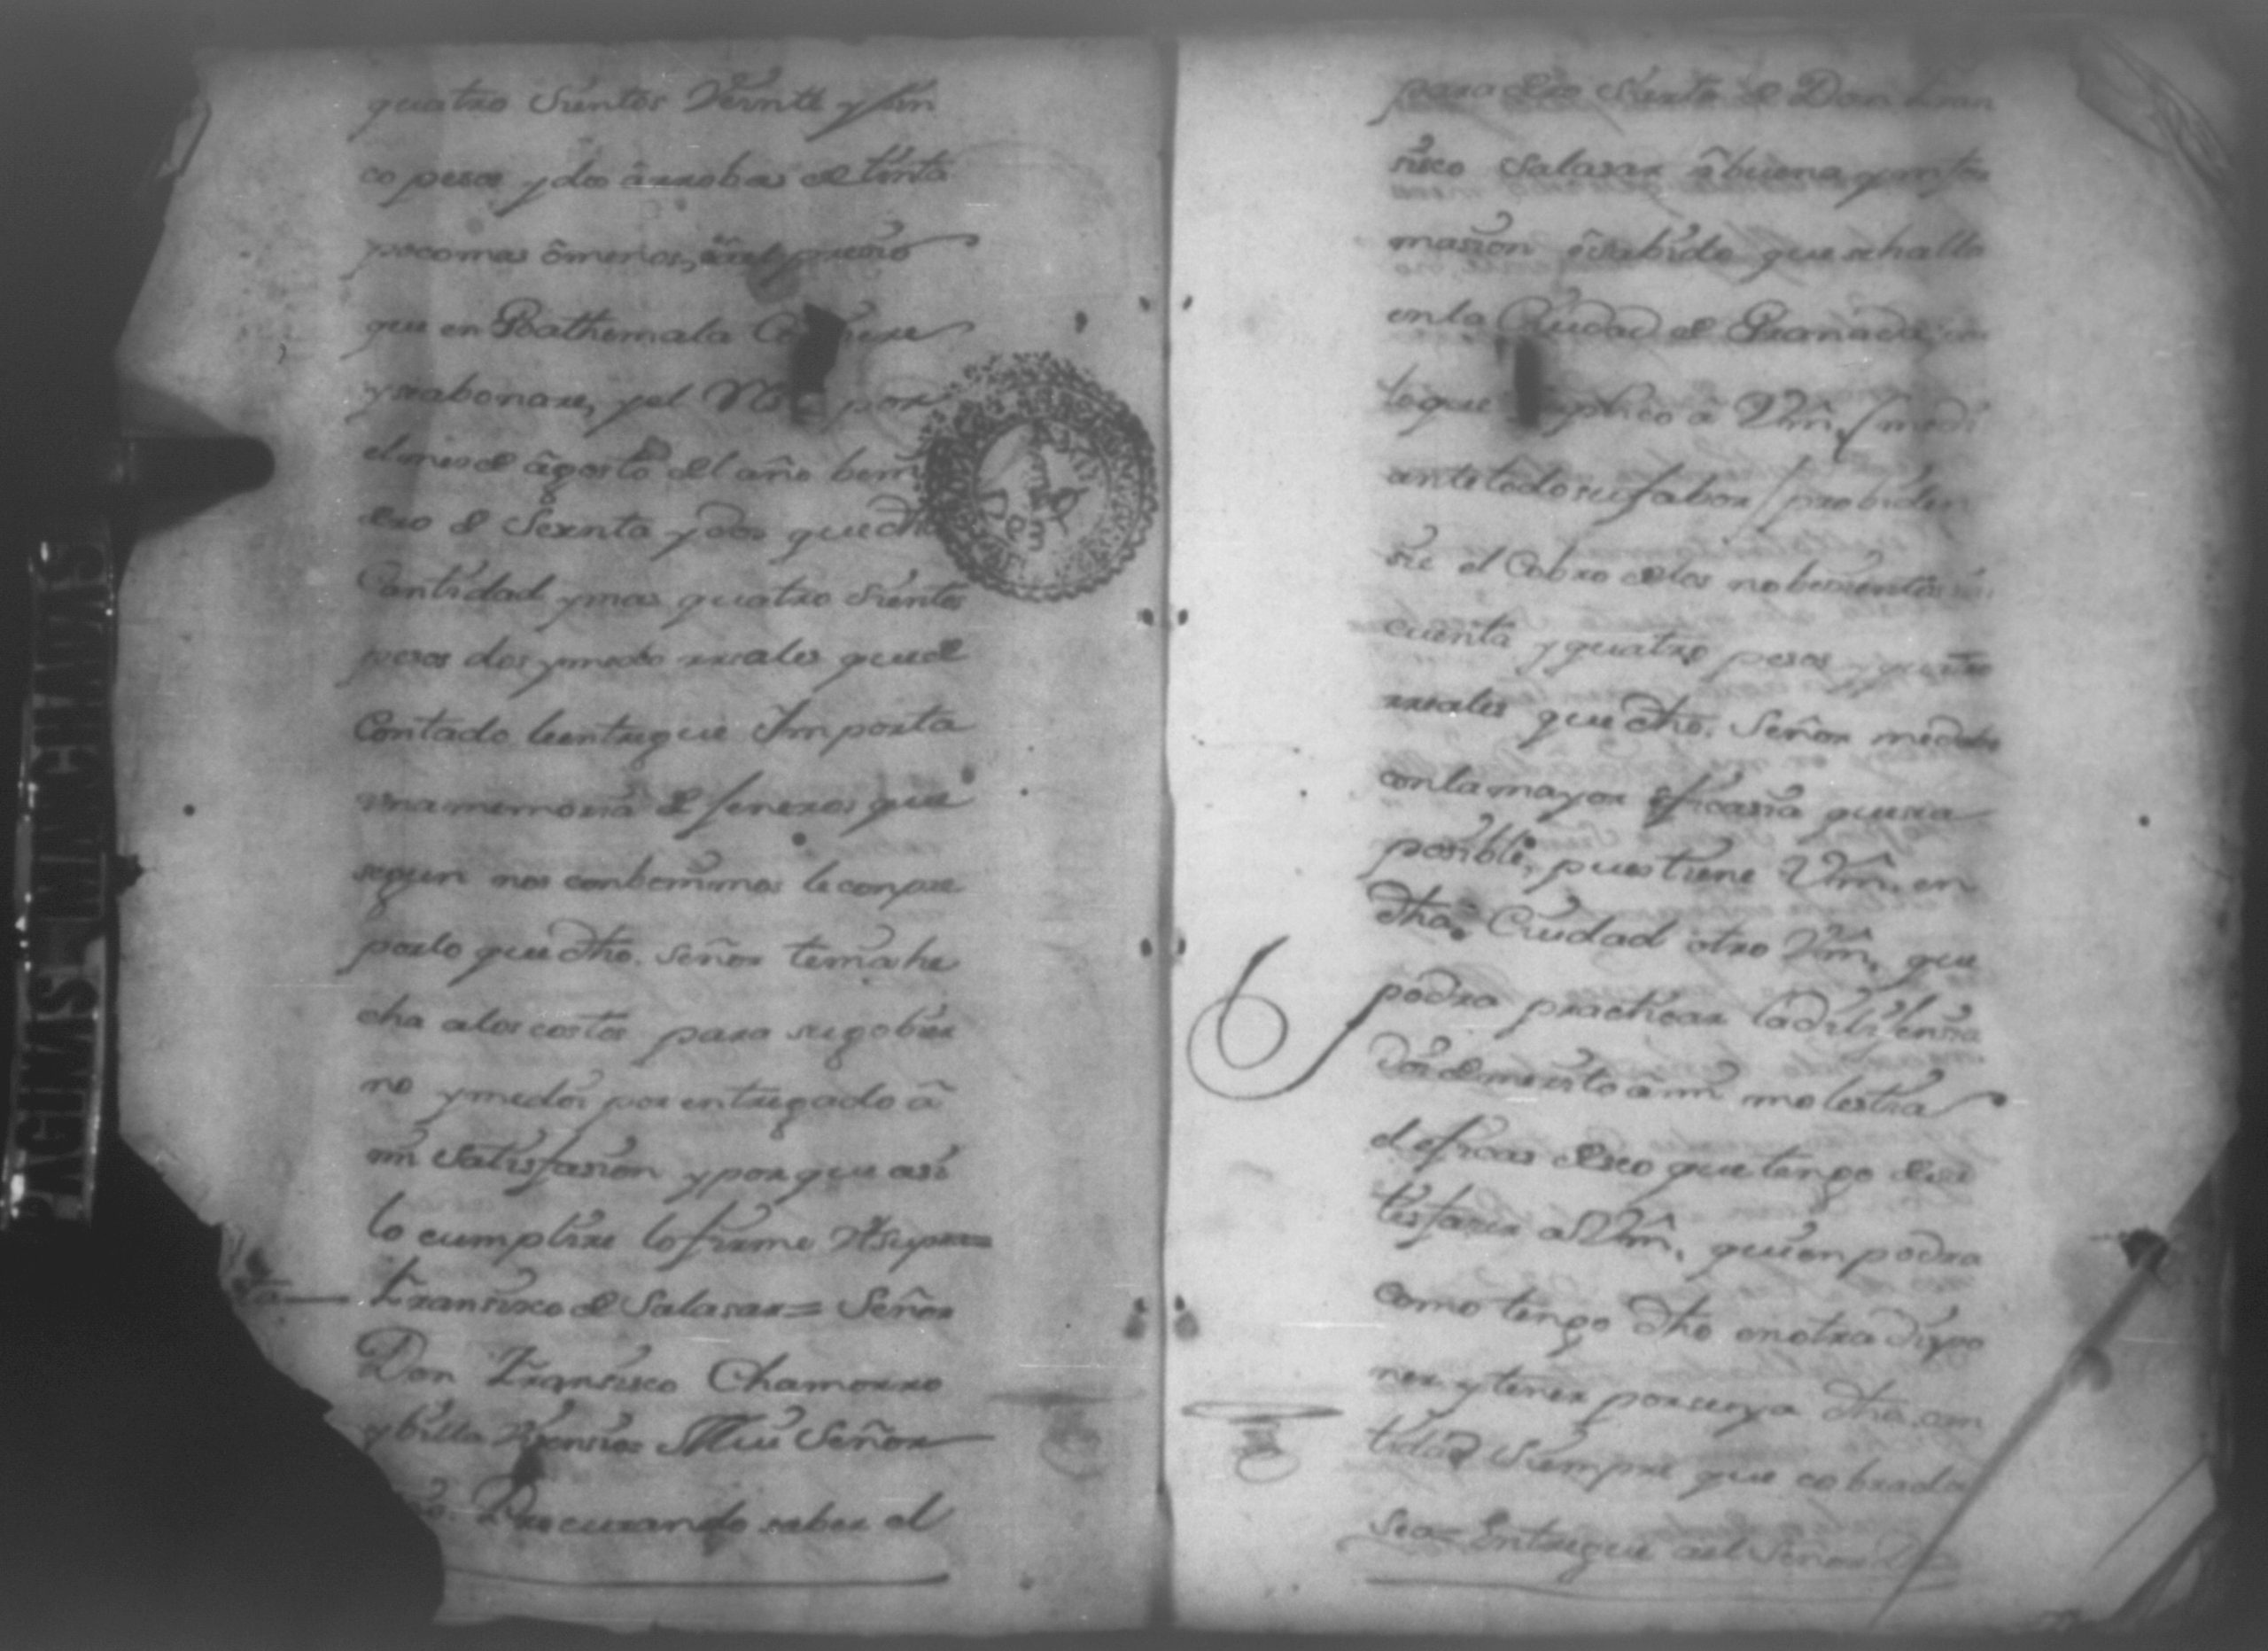 quatro Sientos Veinte y sin
co pesos y dos arrobas de tinta
poco mas ô menos, presio
que en Goathemala
y rabonare, y el por
el mes de âgosto del año beni
dero de Sesenta y dos que dha
Cantidad y mas quatro Sientos
pesos dos y medio rreales que de
Contado le entregue Importa
una memoria de Jeneros que
segun nos conbenimos le conpre
por lo que dho. Señor tenia he
cha a los costos para su gobier
no y me doi por entregado â
mi Satisfasion y por que asi
lo cumplire lo firme Vt supra=
Fransisco de Salasar= Señor
Don Fransisco Chamorro
y billa Mui Señor
Procurando saber el
paradero Sierto de Don Fran
sisco Salasar
masion ê sabido que se halla
en la Ciudad de Granada
lo que suplico â Vm̂. (medi
ante todo su fabor) probiden
sie el Cobro de los nobesientos sin
cuenta y quatro pesos y quatro
rreales que dho. Señor me debe
con la mayor eficasia que sea
posible, pues tiene Vm̂. en
dha. Ciudad otro Vm̂. que
podra practicar la dilijensia
molestia
el eficas deseo que tengo de sa
tisfacer a Vm̂. quien podra
como tengo dho en otra dispo
ner y tener por suya dha. can
tidad Siempre que cobrada
sea= Entregue al Señor